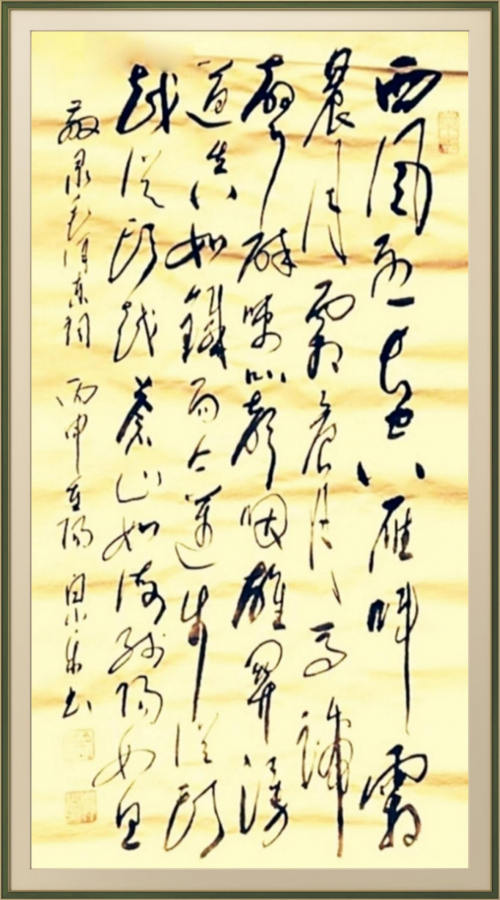 西風烈長空雁叫霜
晨月霜晨月馬蹄
聲碎喇叭聲咽雄関漫
道真如鐵而今邁步從頭
越從頭越蒼山如海殘陽如血
敬录毛泽東词 丙申重陽 书